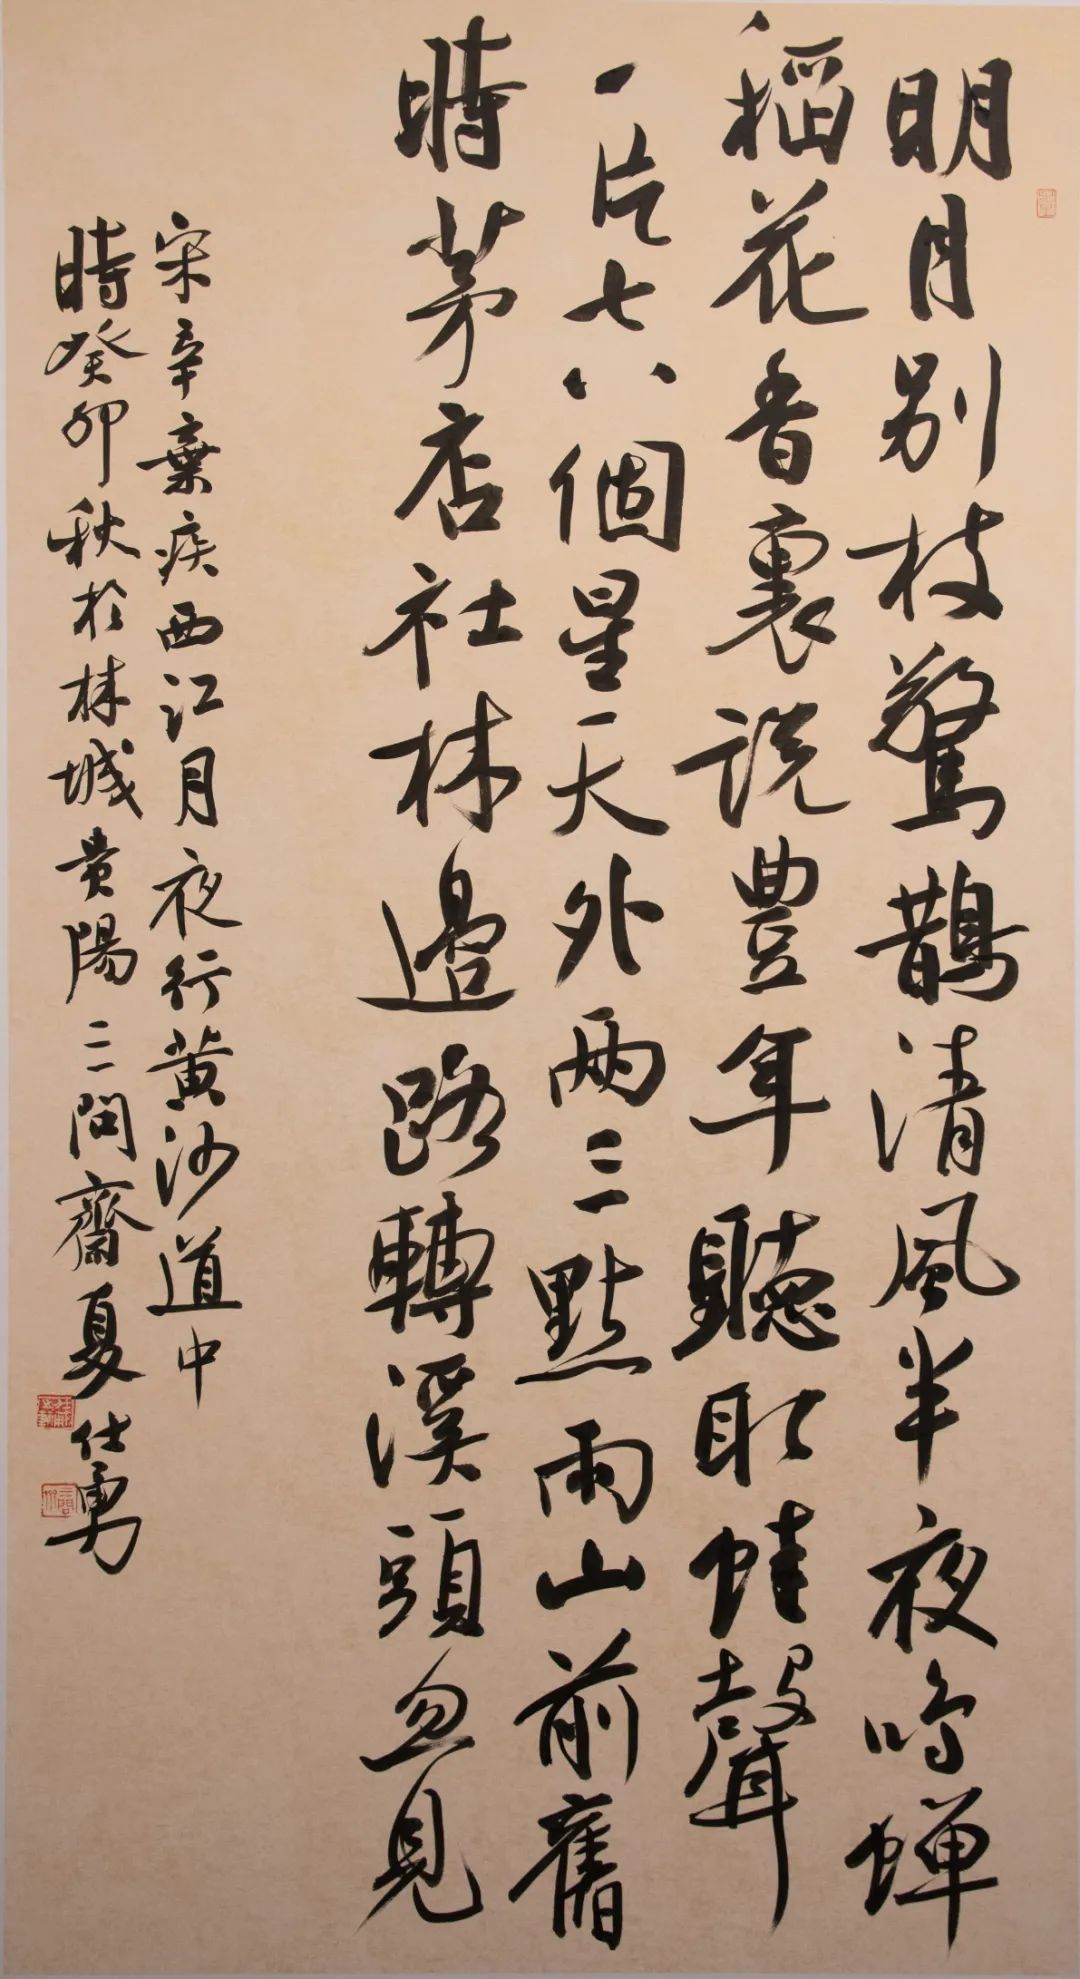 明月别枝驚鵲清風半夜鳴蟬
稻花香裏説豐年聽取蛙聲
一片七八個星天外兩三點雨山前舊
時茅店社林邊路轉溪頭忽見
宋辛棄疾西江月夜行黄沙道中
時癸卯秋於林城貴陽三問齋夏仕勇